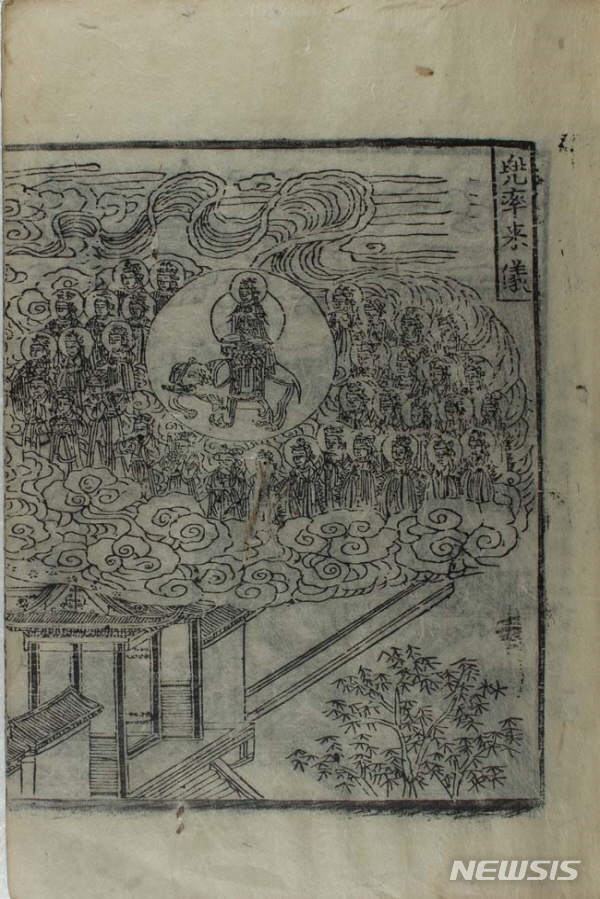 兠率来儀
NEWSIS